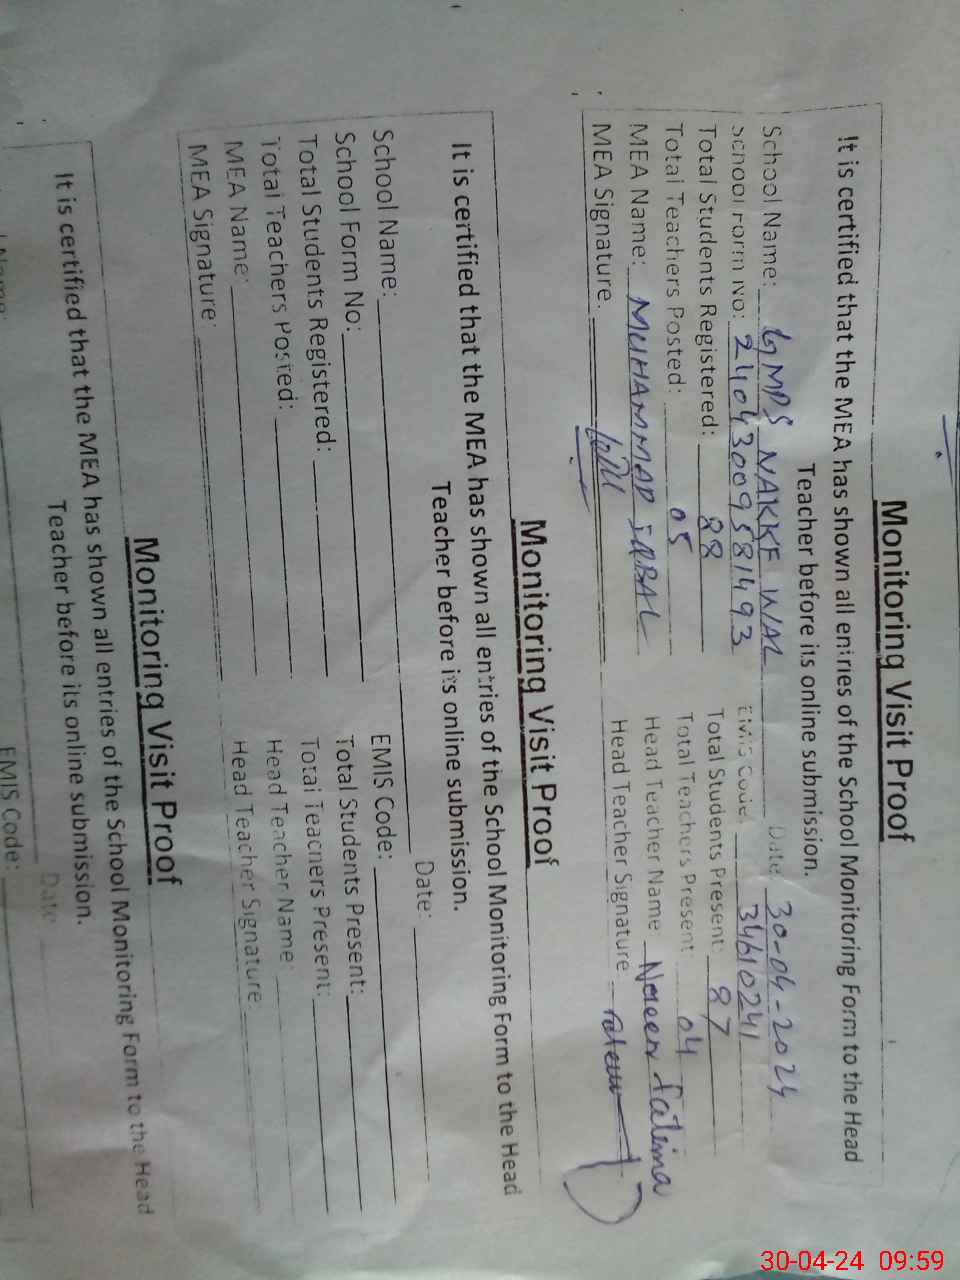 Monitoring Visit Proof
It is certified that the MEA has shown all entries of the School Monitoring Form to the Head
Teacher before its online submission.
School Name: GMPS NAKKE WAL Date: 30-04-2024
School Form No: 2404300958 1493 EMIS Code: 34610241
Total Students Registered: 88 Total Students Present: 87
Total Teachers Posted: 05 Total Teachers Present 04
MEA Name: MUHAMMAD IQBAL Head Teacher Name Noreen Fatima
MEA Signature: Head Teacher Signature:
Monitoring Visit Proof
It is certified that the MEA has shown all entries of the School Monitoring Form to the Head
Teacher before its online submission.
Date:
School Name: EMIS Code:
School Form No: Total Students Present:
Total Students Registered: Total Teachers Present:
Total Teachers Posted: Head Teacher Name:
MEA Name: Head Teacher Signature:
MEA Signature:
Monitoring Visit Proof
It is certified that the MEA has shown all entries of the School Monitoring Form to the Head
Teacher before its online submission.
Date
Name: EMIS Code:
30-04-24 09:59